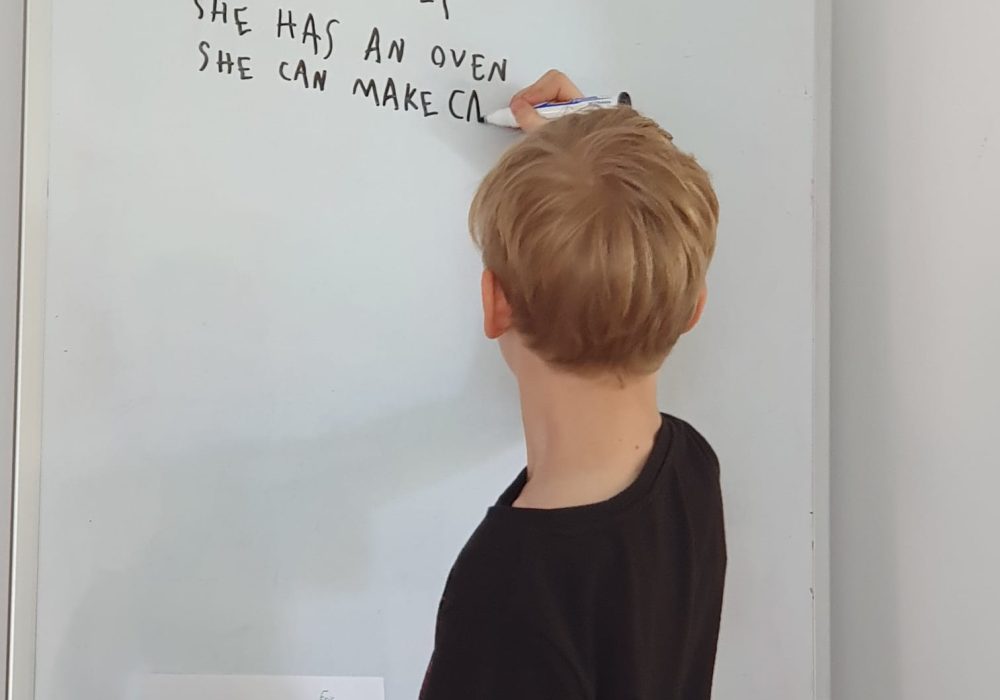 SHE HAS AN OVEN
SHE CAN MAKE CA